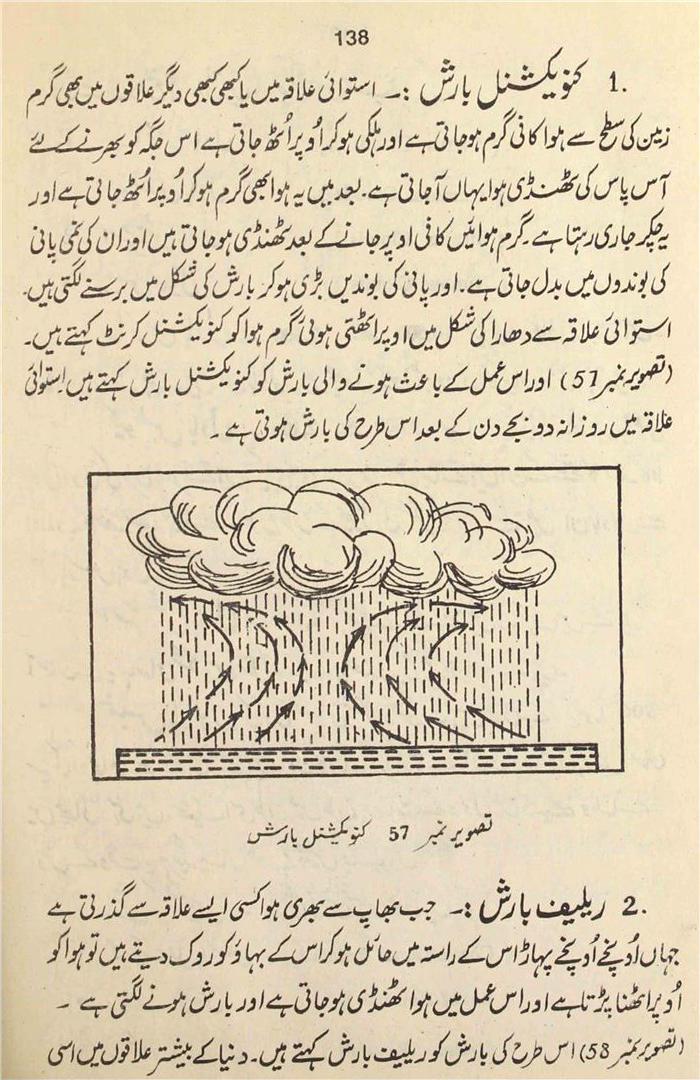 138
1. کنویکشنل بارش :۔ استوائی علاقہ میں یا کبھی کبھی دیگر علاقوں میں بھی گرم
زمین کی سطح سے ہوا کافی گرم ہوجاتی ہے اور ہلکی ہوکر اُوپر اُٹھ جاتی ہے اس جگہ کو بھرنے کے لئے
آس پاس کی ٹھنڈی ہوا یہاں آجاتی ہے۔ بعد میں یہ ہوا بھی گرم ہوکر اُوپر اُٹھ جاتی ہے اور
یہ چکر جاری رہتا ہے۔ گرم ہوائیں کافی اوپر جانے کے بعد ٹھنڈی ہوجاتی ہیں اور ان کی نمی پانی
کی بوندوں میں بدل جاتی ہے۔ اور پانی کی بوندیں بڑی ہوکر بارش کی شکل میں برسنے لگتی ہیں۔
استوائی علاقہ سے دھارا کی شکل میں اوپر اٹھتی ہوئی گرم ہوا کو کنویکشنل کرنٹ کہتے ہیں۔
(تصویر نمبر 57) اور اس عمل کے باعث ہونے والی بارش کو کنویکشنل بارش کہتے ہیں اِستوائی
علاقہ میں روزانہ دو بجے دن کے بعد اس طرح کی بارش ہوتی ہے ۔
تصویر نمبر 57 کنویکشنل بارش
2. ریلیف بارش :۔ جب بھاپ سے بھری ہوا کسی ایسے علاقہ سے گذرتی ہے
جہاں اُونچے اُونچے پہاڑ اس کے راستہ میں حائل ہوکر اس کے بہاؤ کو روک دیتے ہیں تو ہوا کو
اُوپر اٹھنا پڑتا ہے اور اس عمل میں ہوا ٹھنڈی ہوجاتی ہے اور بارش ہونے لگتی ہے ۔
(تصویر نمبر 58) اس طرح کی بارش کو ریلیف بارش کہتے ہیں۔ دنیا کے بیشتر علاقوں میں اسی